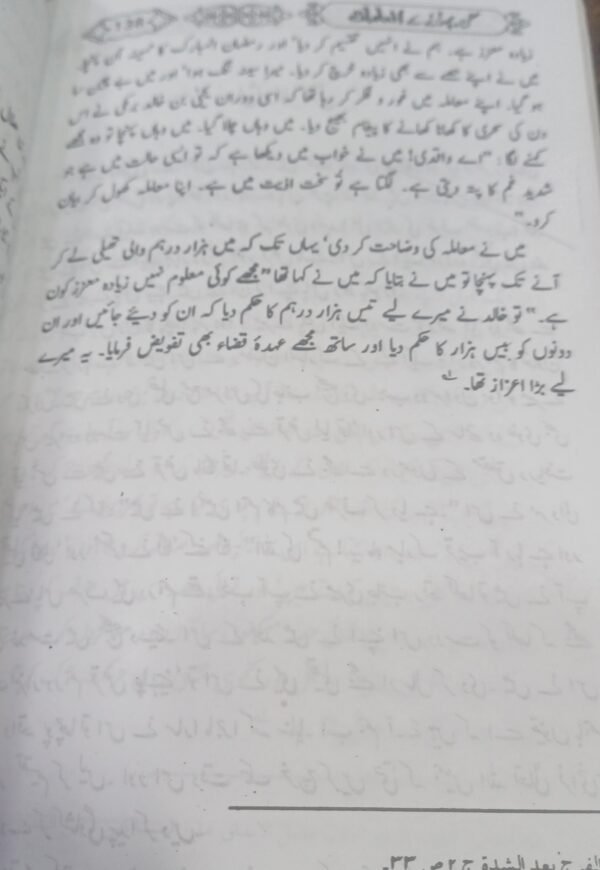 138
زیادہ معزز ہے۔ ہم نے انہیں تقسیم کر دیا' اور رمضان المبارک کا مہینہ آن پہنچا
میں نے اپنے حصے سے بھی زیادہ خرچ کر دیا۔ میرا سینہ تنگ ہوا' اور میں بے چین سا
ہو گیا۔ اپنے معاملہ میں غور و فکر کر رہا تھا کہ اسی دوران یحییٰ بن خالد برمکی نے اس
دن کی سحری کا کھانا کھانے کا پیغام بھیج دیا۔ میں وہاں چلا گیا۔ میں وہاں پہنچا تو وہ مجھے
کہنے لگا: "اے واقدی! میں نے خواب میں دیکھا ہے کہ تو ایسی حالت میں ہے جو
شدید غم کا پتہ دیتی ہے۔ لگتا ہے تو سخت اذیت میں ہے۔ اپنا معاملہ کھول کر بیان
کرو۔"
میں نے معاملہ کی وضاحت کر دی' یہاں تک کہ میں ہزار درہم والی تھیلی لے کر
آنے تک پہنچا تو میں نے بتایا کہ میں نے کہا تھا "مجھے کوئی معلوم نہیں زیادہ معزز کون
ہے۔" تو خالد نے میرے لیے تیس ہزار درہم کا حکم دیا کہ ان کو دیئے جائیں اور ان
دونوں کو بیس ہزار کا حکم دیا اور ساتھ مجھے عہدۂ قضاء بھی تفویض فرمایا۔ یہ میرے
لیے بڑا اعزاز تھا۔ ؎۱
الفرج بعد الشدة ج ۲ ص ۳۳۔